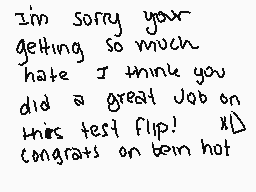 I'm sorry your
getting so much
hate I think you
did a great Job on
this test flip! XD
congrats on bein hot